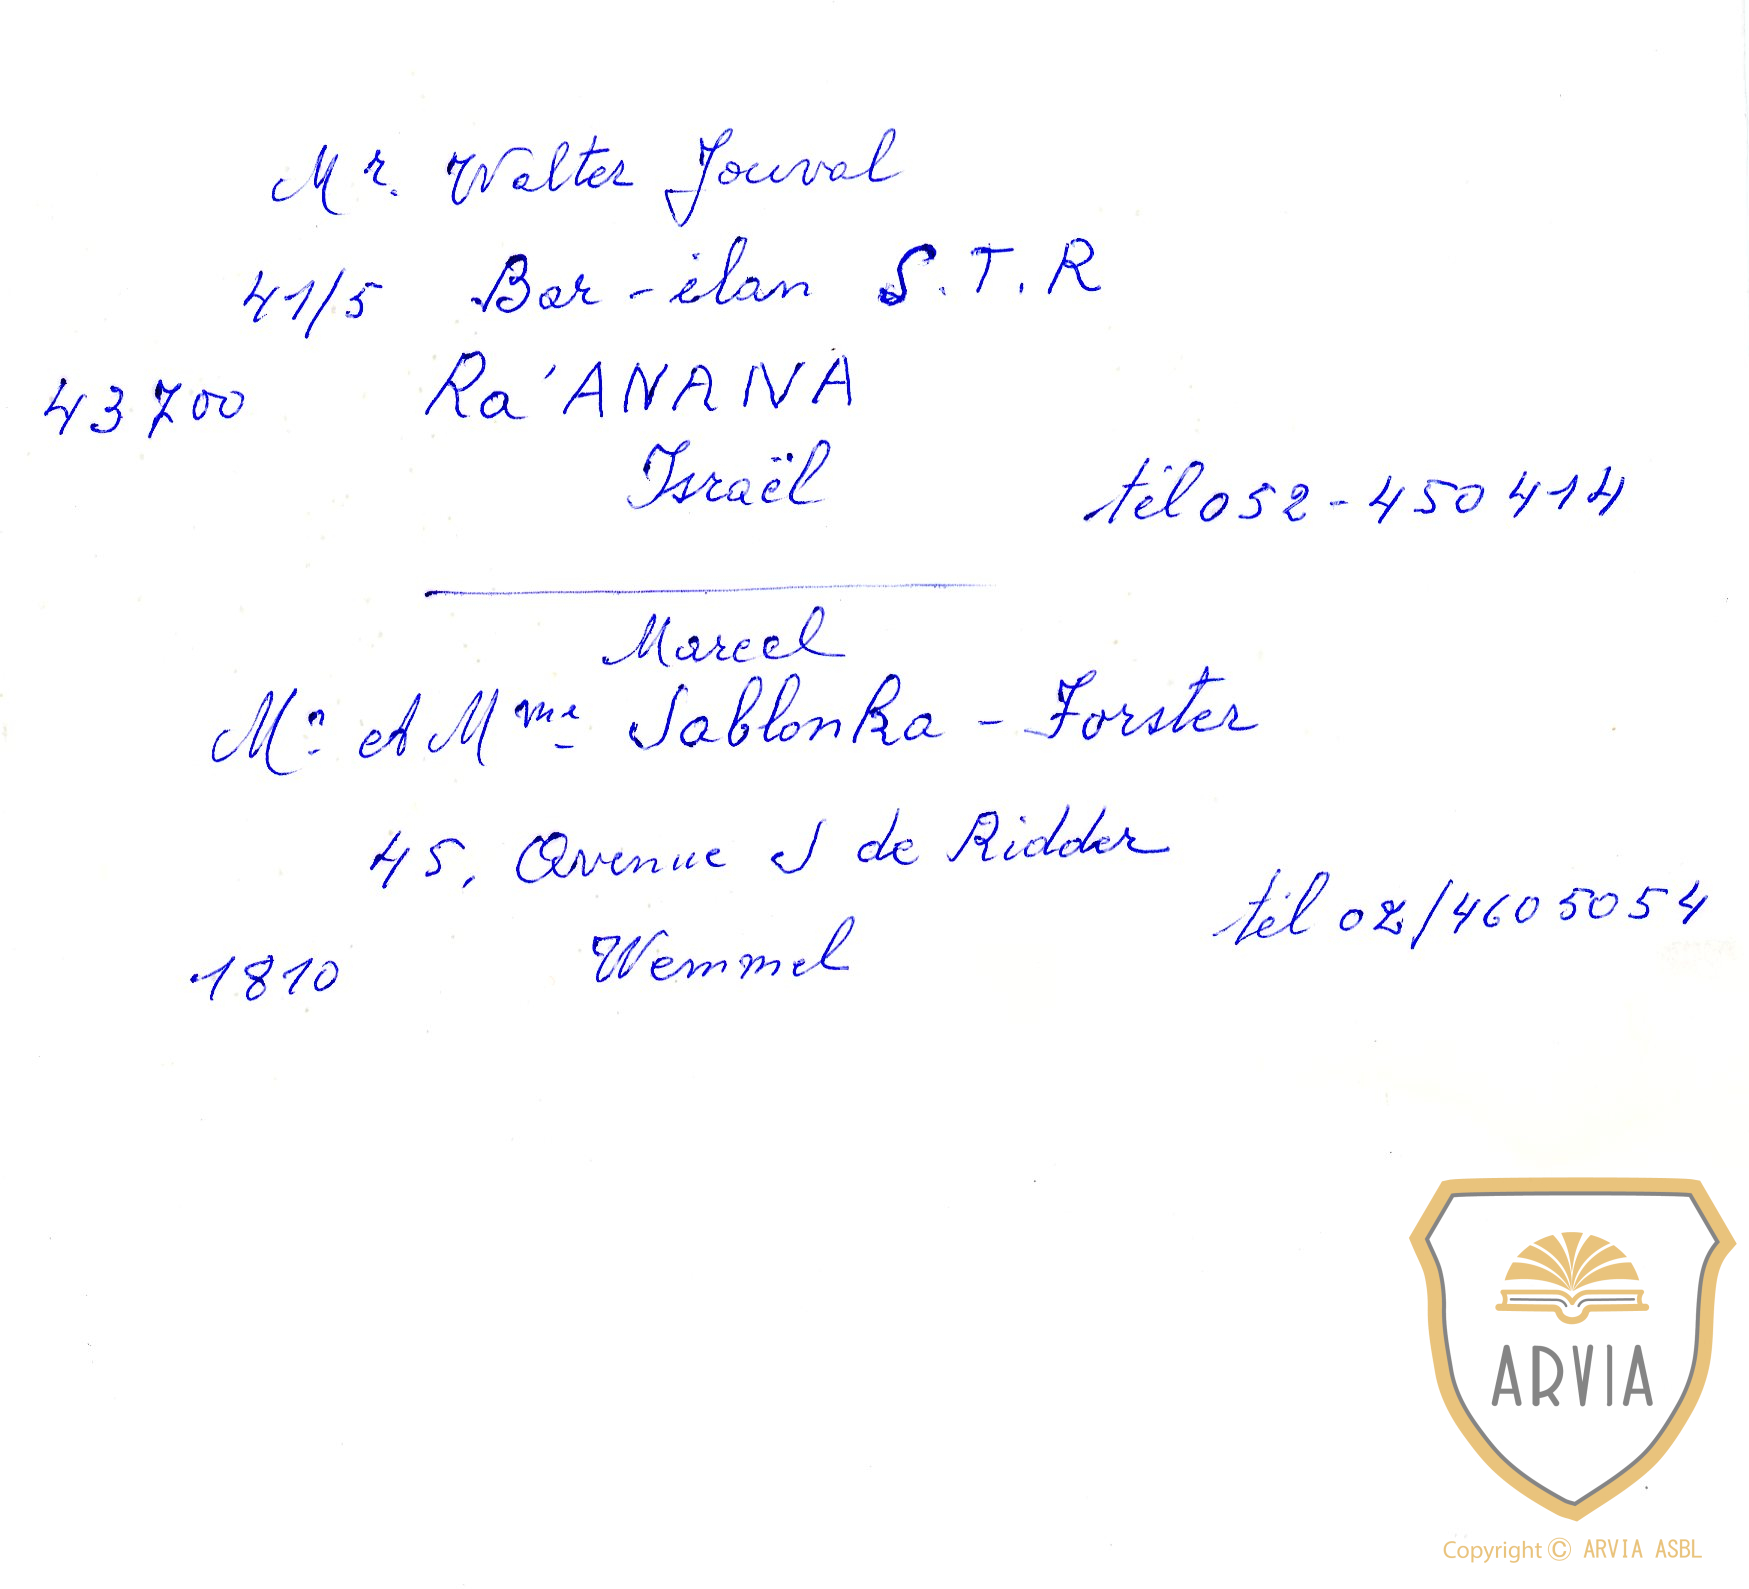 Mr. Walter Jouval
41/5 Bar-ilan S.T.R
43700 Ra'ANANA
Israël
tél 052-450414
Marcel
Mr et Mme Jablonka - Forster
45, Avenue J de Ridder
tél 02/4605054
1810 Wemmel
ARVIA
Copyright © ARVIA ASBL